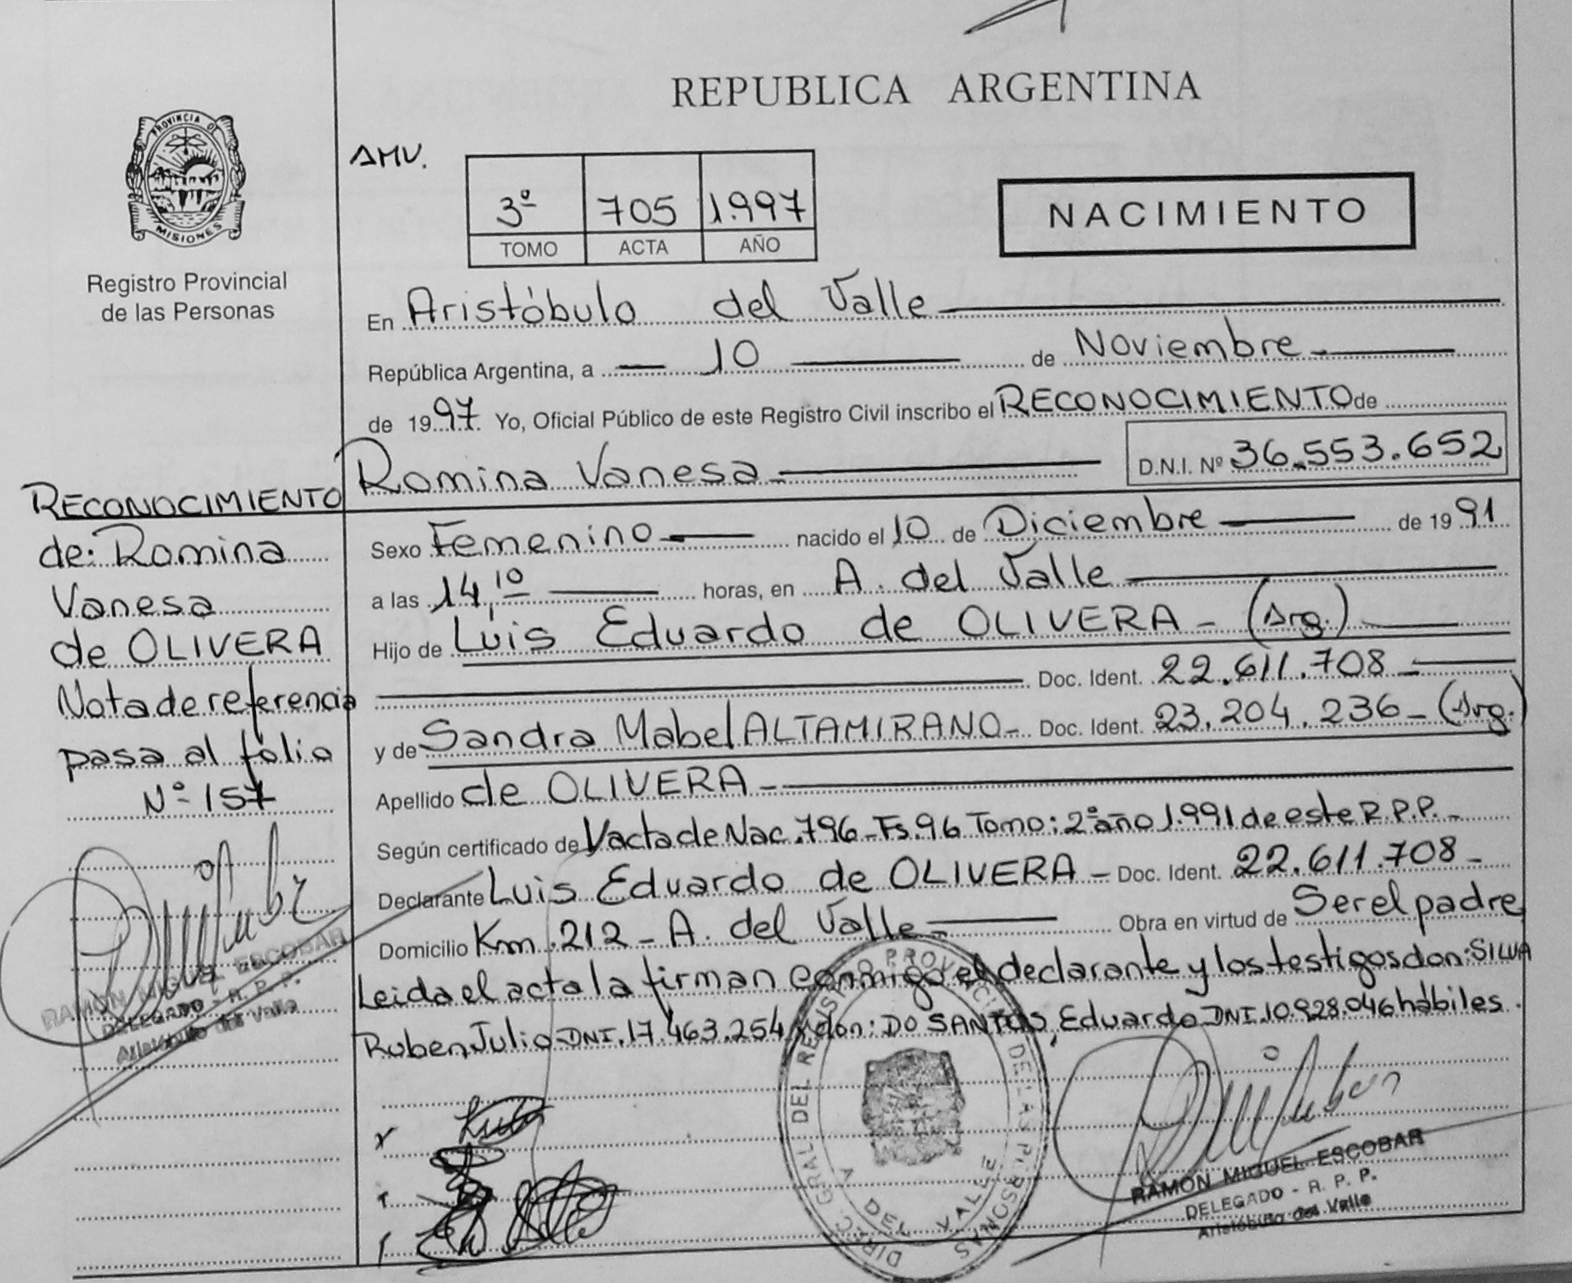 REPUBLICA ARGENTINA
PROVINCIA DE
MISIONES
Registro Provincial
de las Personas
AMV.
3º 705 1.997
TOMO ACTA AÑO
NACIMIENTO
En Aristóbulo del Valle
República Argentina, a 10 de Noviembre
de 1997. Yo, Oficial Público de este Registro Civil inscribo el RECONOCIMIENTO de
Romina Vanesa D.N.I. Nº 36.553.652
Sexo Femenino nacido el 10 de Diciembre de 1991
a las 14,10 horas, en A. del Valle
Hijo de Luis Eduardo de OLIVERA - (Arg.)
Doc. Ident. 22.611.708
y de Sandra Mabel ALTAMIRANO - Doc. Ident. 23.204.236 - (Arg.)
Apellido de OLIVERA
Según certificado de V acta de Nac. 796 - Fs. 96 Tomo: 2º año 1.991 de este R.P.P. -
Declarante Luis Eduardo de OLIVERA - Doc. Ident. 22.611.708 -
Domicilio Km. 212 - A. del Valle Obra en virtud de Ser el padre
Leida el acta la firman conmigo el declarante y los testigos don: SILVA
Ruben Julio - DNI. 17.463.254 y don: DO SANTOS, Eduardo DNI. 10.928.046 hábiles.
RECONOCIMIENTO
de: Romina
Vanesa
de OLIVERA
Nota de referencia
pasa al folio
Nº 157
RAMÓN MIGUEL ESCOBAR
DELEGADO - R. P. P.
Aristóbulo del Valle
DIREC. GRAL DEL REGISTRO PROVINCIAL DE LAS PERSONAS
A DEL VALLE
RAMÓN MIGUEL ESCOBAR
DELEGADO - R. P. P.
Aristóbulo del Valle